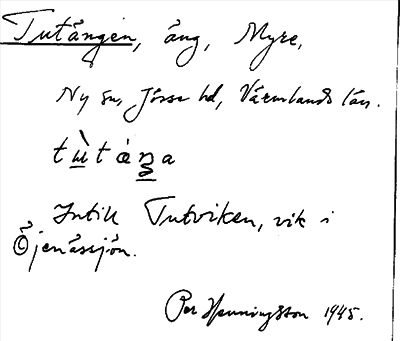 Tutången, äng, Myre,
Ny sn, Jösse hd, Värmlands län.
tù̱tåŋa
Intill Tutviken, vik i
Öjenässjön.
Per Henningsson 1945.